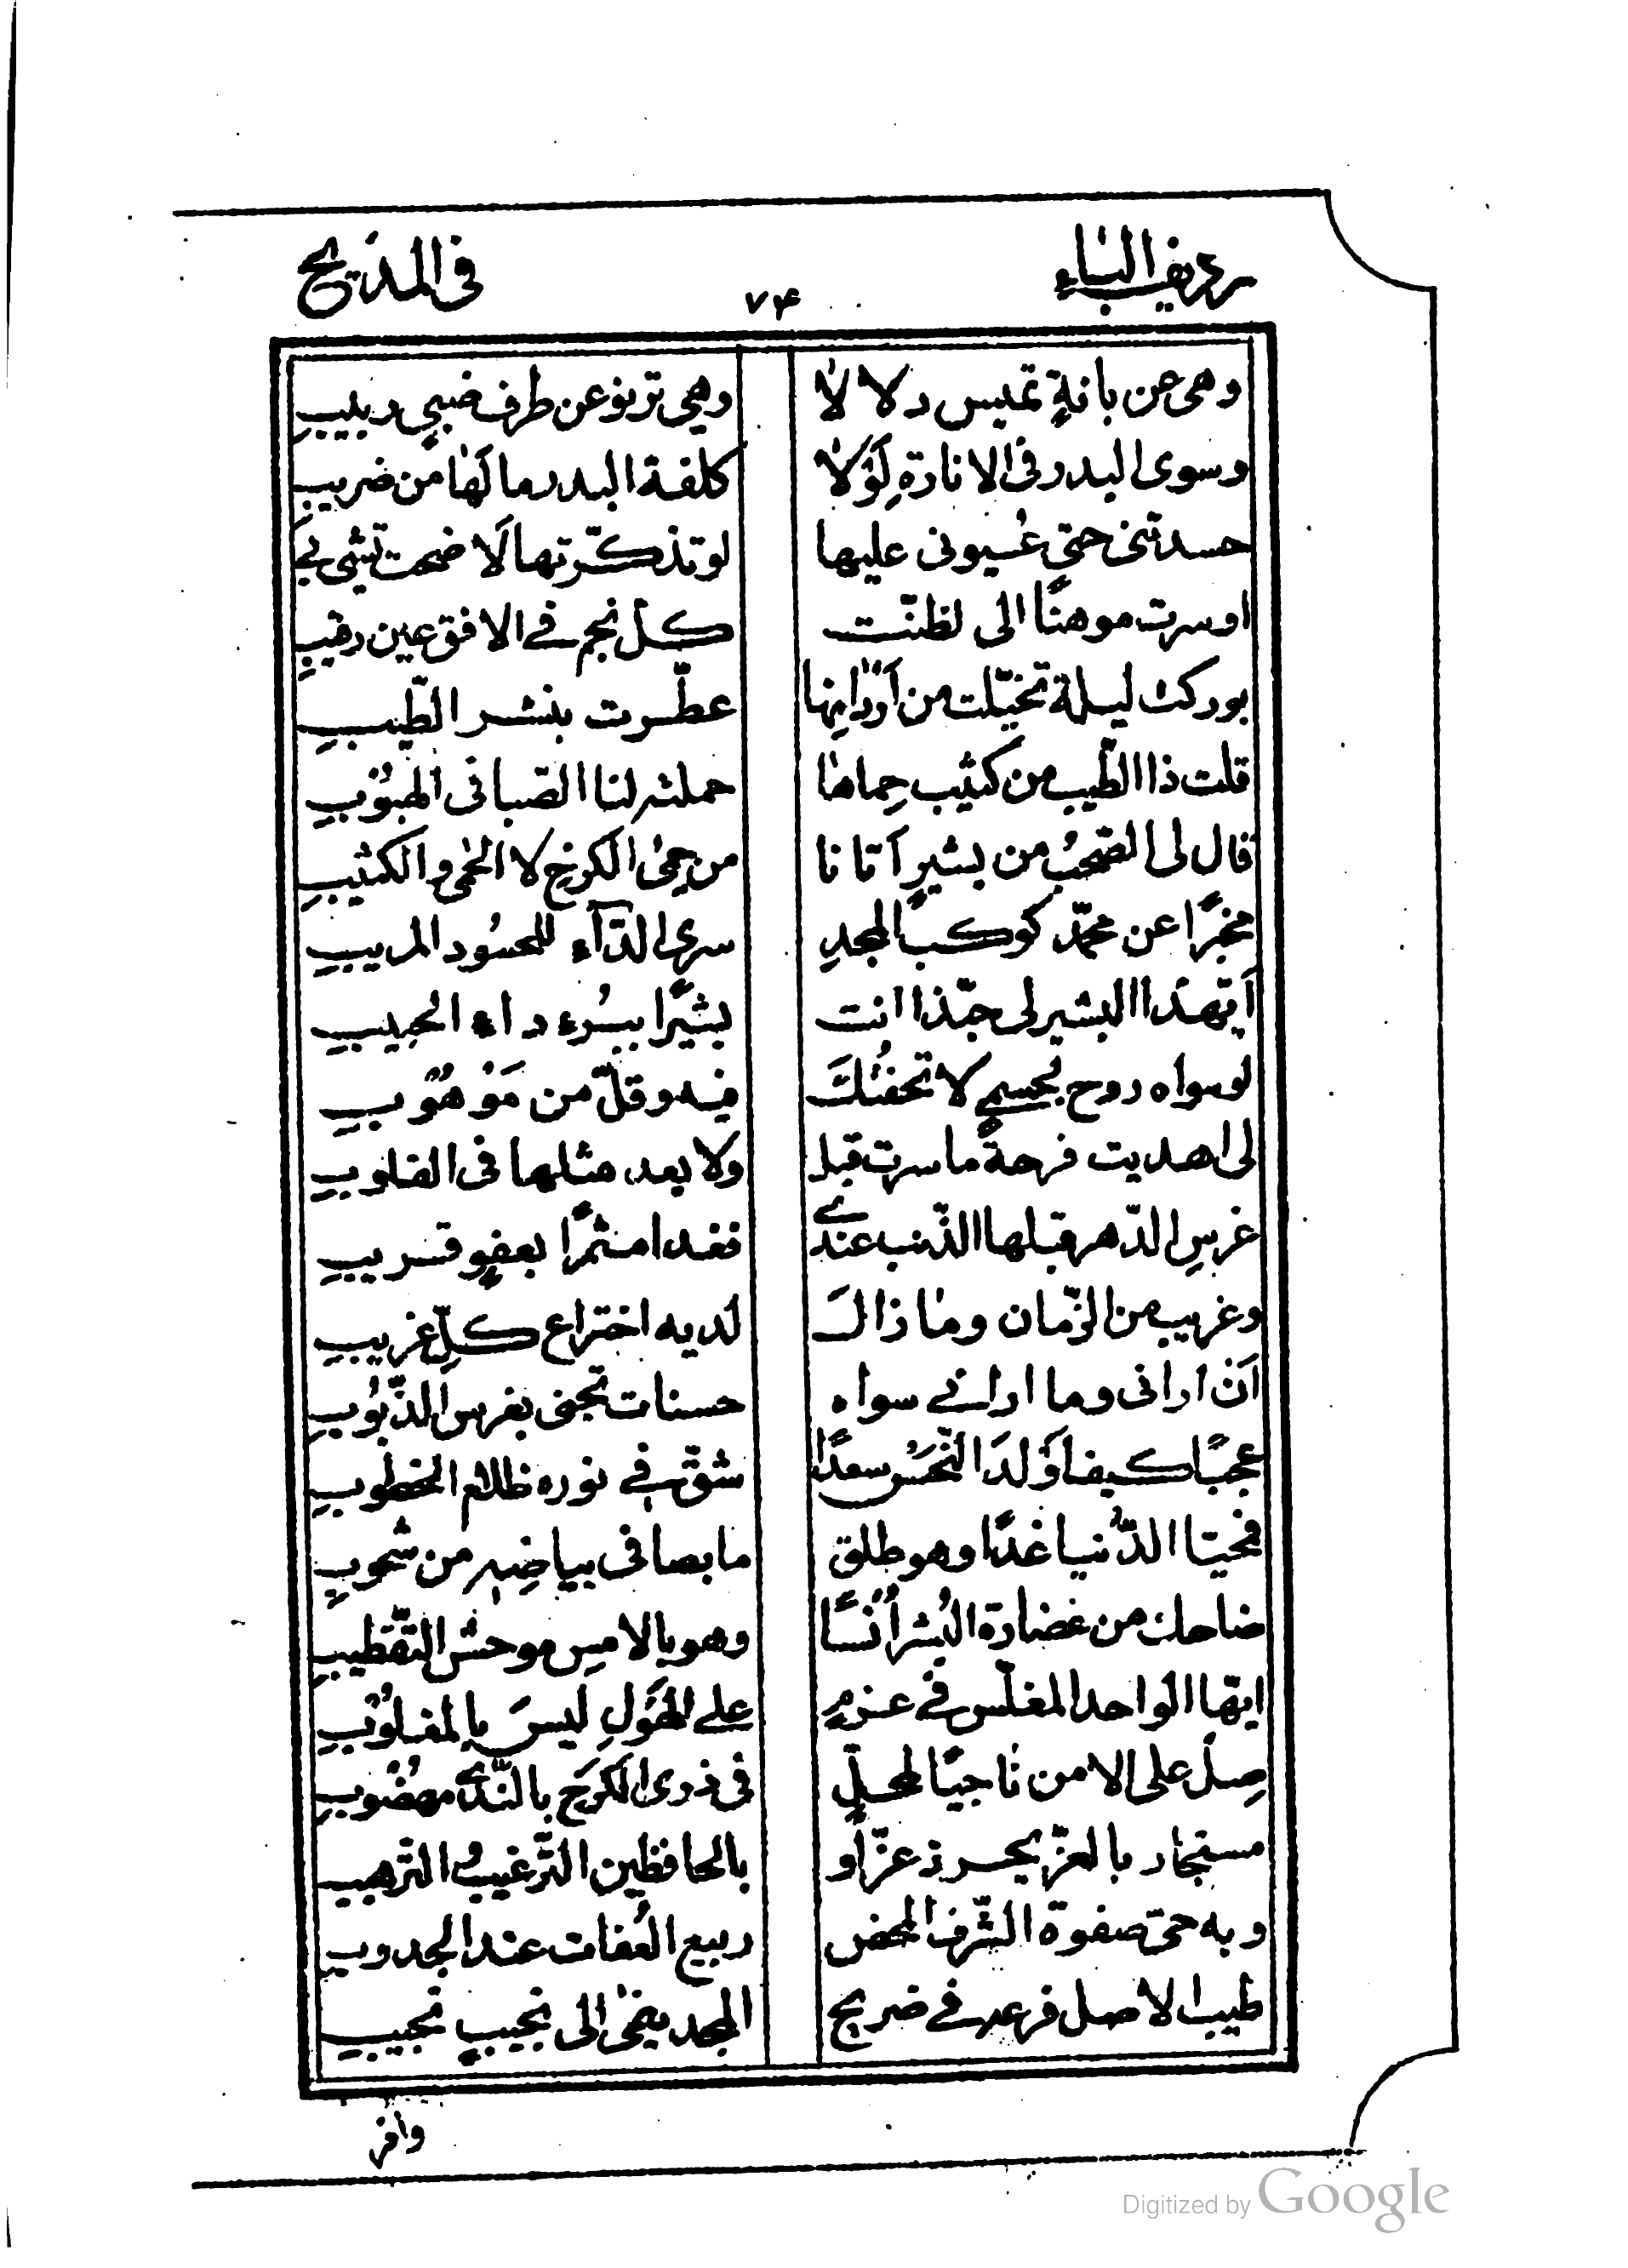 رديف الباء ٧۴ في المديح
وهي عن بانةٍ تميس دلالا وهي ترنو عن طرف ضبيٍ ربيبِ
وسوى البدر في الانارة لَوْلا كلفة البدر ما لَها من ضريبِ
حسدتني حتى عُيوني عليها لو تذكّرتها لَاضحت تشي بي
او سرت موهنًا الى لظنّت كل نجم في الافق عين رقيبِ
بوركت ليلة تخيّلت من اَرْدانِها عطّرت بنشر الطّيبِ
قلت ذا الطّيب من كثيب حِماها حملته لنا الصّبا في الهبُوْبِ
قال لي الصّحبُ من بشيرٍ اَتانا من حِمى الكرخِ لا الحمى والكثيبِ
مخبرًا عن محمّد كوكب المجدِ سرى الدّآء للحسُود المريبِ
اَيّهذا البشير لي حبّذا انت بشيرًا ببُرء داء الحبيبِ
لو سواه روح بجسمي لاتحفتُكَ فيه وقلّ من مَوْهُوْبِ
لي اهديت فرحةً ما سرت قبل ولا بعد مثلها في القلوبِ
غرسِ الدّهر قبلها الذّنب عندي فغدا مثمرًا بعفوٍ قريبِ
وغريب من الزّمان وما زال لديه اختراع كلّ غريبِ
اَن اراني وما اراني سواه حسنات تجنى بغرس الذّنوُبِ
عجبًا كيف اَوْلدَ النّحسُ سعدًا شقّ في نوره ظلام الخطُوبِ
فمحيّا الدّنيا غدًا وهو طلق ما بصافي بياضِهِ من شحوبِ
ضاحك من غضارة البُشر اُنسًا وهو بالامسِ موحش التّقطيبِ
ايّها الواحد المغلّس في عزمٍ على الهَولِ ليسَ بالمغلوْبِ
صِلْ على الامن ناجيًا لمحلٍّ في ذرى الكرخ بالنّدى مهضُوبِ
مستجار بالعزّ يحرز عزّا و بالحافظين التّرغيب والتّرهيبِ
وبه حيّ صفوة الشّرف المحض ربيع العُفات عند الجدوبِ
طيب الاصل فرعه في ضريح المجد ينمى الى نجيبٍ نجيبِ
وافر
Digitized by Google